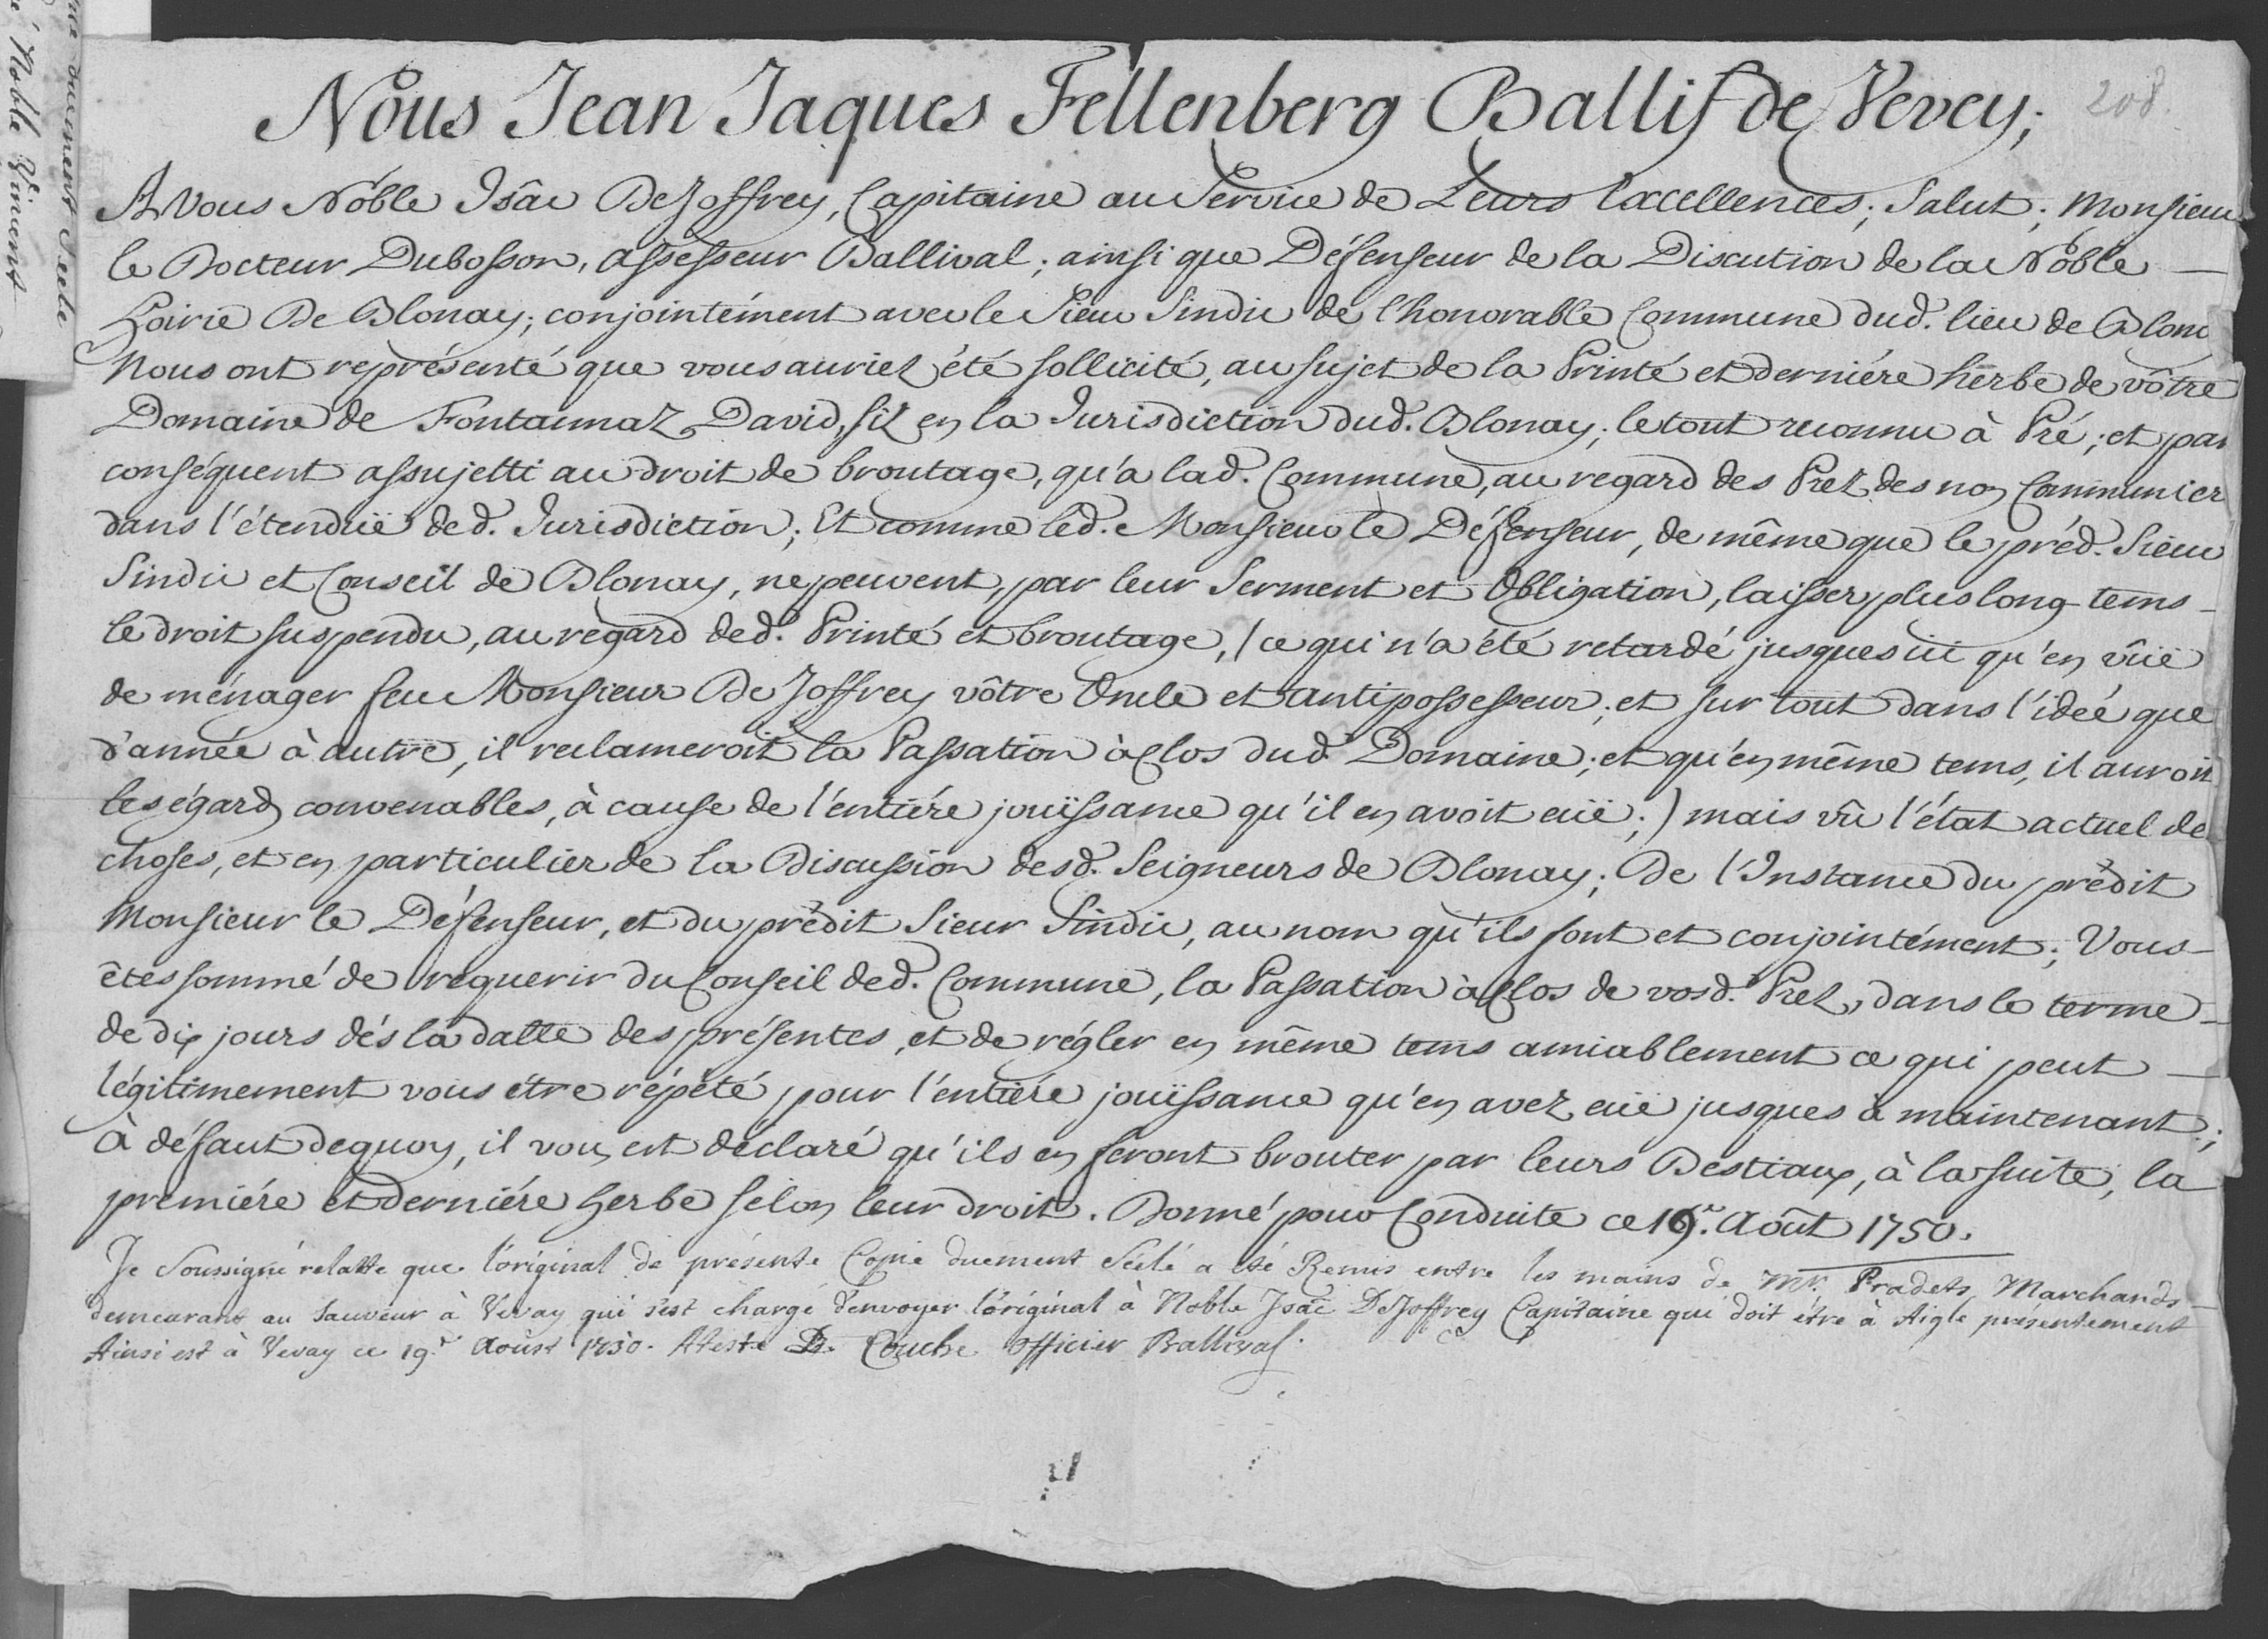 208.
Nous Jean Jaques Fellenberg Ballif de Vevey;
A Vous Noble Isâc De Joffrey, Capitaine au Service de Leurs Excellences; Salut; Monsieur
le Docteur Dubosson, assesseur Ballival; ainsi que Défenseur de la Discution de la Noble
Hoirie De Blonay; conjointément avec le Sieur Sindic de l'honorable Commune dud. lieu de Blona
Nous ont représenté que vous auriez été sollicité, au sujet de la Printé et derniére herbe de vôtre
Domaine de Fontannaz David, siz en la Jurisdiction dud. Blonay; le tout reconnu à Pré; et par
conséquent assujetti au droit de broutage, qu'a lad. Commune, au regard des Prez des non Communier
dans l'étendüe de d. Jurisdiction; Et comme led. Monsieur le Défenseur, de même que le préd. Sieur
Sindic et Conseil de Blonay, ne peuvent, par leur Serment et Obligation, laisser plus long-tems
le droit suspendu, au regard de d. Printé et broutage, / ce qui n'a été retardé jusques ici qu'en vüe
de ménager feu Monsieur De Joffrey vôtre Oncle et antipossesseur; et sur tout dans l'idée que
d'année à autre, il reclameroit la Passation à Clos dud. Domaine; et qu'en même tems, il auroit
les égards convenables, à cause de l'entiére jouïssance qu'il en avoit eüe; / mais vû l'état actuel de
choses, et en particulier de la Discussion desd. Seigneurs de Blonay; De l'Instance du prédit
Monsieur le Défenseur, et du prédit Sieur Sindic, au nom qu'ils sont et conjointément; Vous
êtes sommé de requerir du Conseil de d. Commune, la Passation à Clos de vosd. Prez, dans le terme
de dix jours dés la datte des présentes, et de régler en même tems amiablement ce qui peut
légitimement vous être répété pour l'entiére jouïssance qu'en avez eüe jusques à maintenant;
à défaut dequoy, il vous est déclaré qu'ils en feront brouter par leurs Bestiaux, à la suite, la
premiére et derniére herbe selon leur droit. Donné pour Conduite ce 19e. Août 1750.
Je Soussigné relatte que l'original de présente Copie duement Séelé a été Remis entre les mains de Mr. Pradets, Marchands
demeurant au Sauveur à Vevay qui s'est chargé d'envoyer l'original à Noble Isaïc DeJoffrey Capitaine qui doit être à Aigle présentement
Ainsi est à Vevay ce 19e. Aoust 1750. Atteste Couche officier Ballival.
duement Seele
Noble Vincent